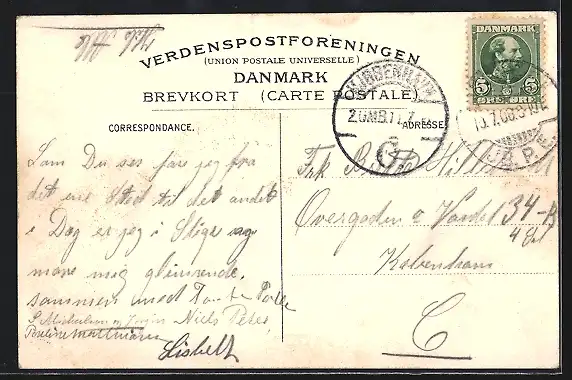 VERDENSPOSTFORENINGEN
(UNION POSTALE UNIVERSELLE)
DANMARK
BREVKORT (CARTE POSTALE)
DANMARK
5 5
ØRE ØRE
KJØBENHAVN
2.OMB.11.7
G
CORRESPONDANCE.
ADRESSE.
Som Du ser farer jeg fra
det ene Sted til det andet
i Dag er jeg i og
more mig glimrende.
sammen med Tante
Niels Peter
Lisbeth
Frk
Overgaden o Vandet 34-B
4 Etl
København
C